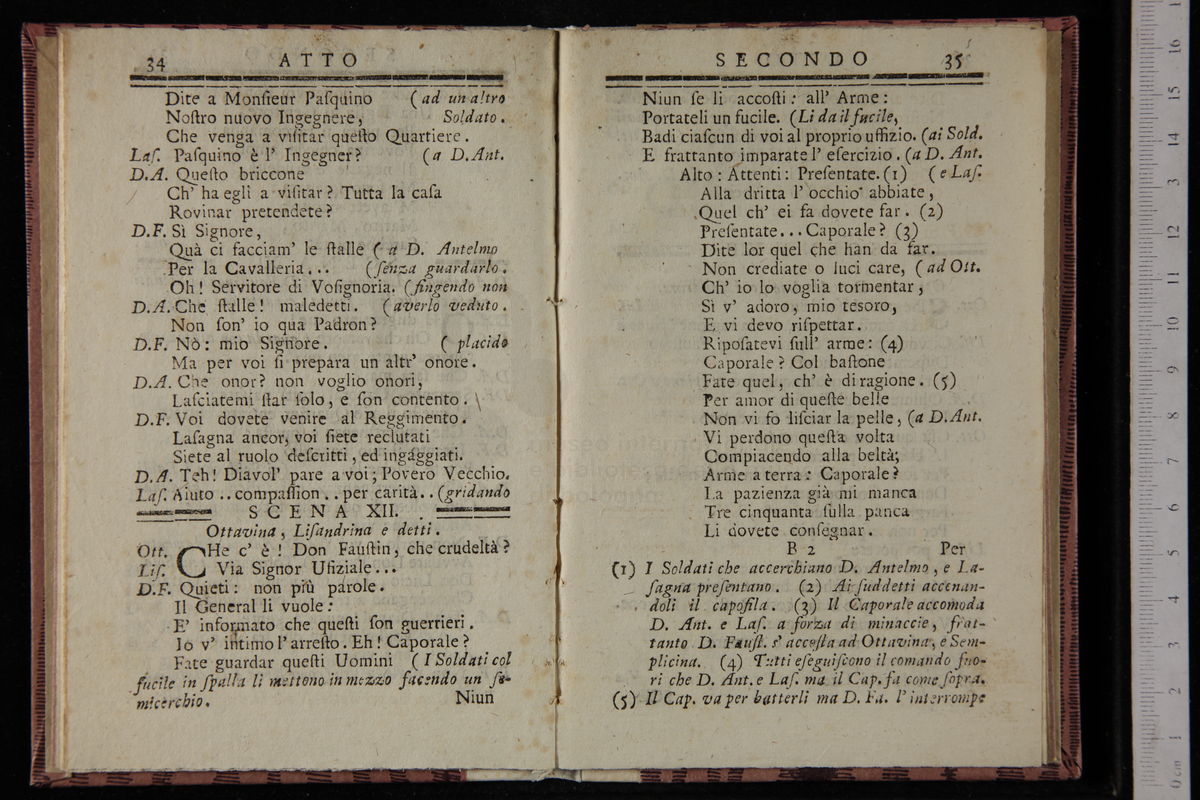 34 ATTO
Dite a Monſieur Paſquino (ad un altro
Noſtro nuovo Ingegnere, Soldato.
Che venga a viſitar queſto Quartiere.
Laſ. Paſquino è l' Ingegner? (a D.Ant.
D.A. Queſto briccone
Ch' ha egli a viſitar? Tutta la caſa
Rovinar pretendete?
D.F. Sì Signore,
Quà ci facciam' le ſtalle ( a D. Antelmo
Per la Cavalleria... (ſenza guardarlo.
Oh! Servitore di Voſignoria. (fingendo non
D.A. Che ſtalle! maledetti. (averlo veduto.
Non ſon' io quà Padron?
D.F. Nò: mio Signore. ( placido
Ma per voi ſi prepara un altr' onore.
D.A. Che onor? non voglio onori,
Laſciatemi ſtar ſolo, e ſon contento.
D.F. Voi dovete venire al Reggimento.
Laſagna ancor, voi ſiete reclutati
Siete al ruolo deſcritti, ed ingággiati.
D.A. Teh! Diavol' pare a voi; Povero Vecchio.
Laſ. Aiuto .. compaſſion .. per carità.. (gridando
SCENA XII.
Ottavina, Liſandrina e detti.
Ott. CHe c' è! Don Fauſtin, che crudeltà?
Liſ. Via Signor Ufiziale...
D.F. Quieti: non più parole.
Il General li vuole:
E' informato che queſti ſon guerrieri.
Io v' intimo l' arreſto. Eh! Caporale?
Fate guardar queſti Uomini (I Soldati col
fucile in ſpalla li mettono in mezzo facendo un ſe-
micerchio. Niun
SECONDO 35
Niun ſe li accoſti: all' Arme:
Portateli un fucile. (Li da il fucile,
Badi ciaſcun di voi al proprio uffizio. (ai Sold.
E frattanto imparate l' eſercizio. (a D. Ant.
Alto: Attenti: Preſentate. (1) (e Laſ.
Alla dritta l' occhio abbiate,
Quel ch' ei fa dovete far. (2)
Preſentate... Caporale? (3)
Dite lor quel che han da far.
Non crediate o luci care, (ad Ott.
Ch' io lo voglia tormentar,
Sì v' adoro, mio teſoro,
E vi devo riſpettar.
Ripoſatevi ſull' arme: (4)
Caporale? Col baſtone
Fate quel, ch' è di ragione. (5)
Per amor di queſte belle
Non vi fo liſciar la pelle, (a D.Ant.
Vi perdono queſta volta
Compiacendo alla beltà;
Arme a terra: Caporale?
La pazienza già mi manca
Tre cinquanta ſulla panca
Li dovete conſegnar.
B 2 Per
(1) I Soldati che accerchiano D. Antelmo, e La-
ſagna preſentano. (2) Ai ſuddetti accenan-
doli il capofila. (3) Il Caporale accomoda
D. Ant. e Laſ. a forza di minaccie, frat-
tanto D. Fauſt. s' accoſta ad Ottavina, e Sem-
plicina. (4) Tutti eſeguiſcono il comando fuo-
ri che D. Ant. e Laſ. ma il Cap. fa come ſopra.
(5) Il Cap. va per batterli ma D. Fa. l' interrompe